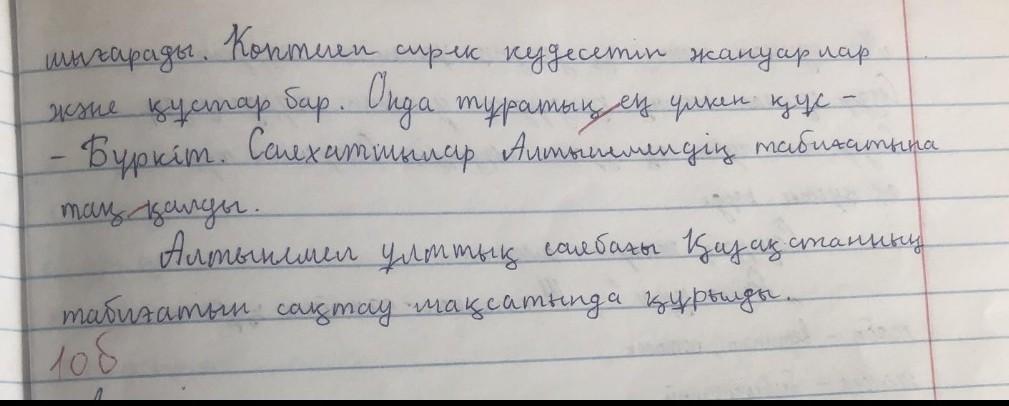 шығарады. Көптиеп сирек кездесетін жануарлар
және құстар бар. Онда тұратың ең үлкен құс -
- Бүркіт. Саяхатшылар Алтынемелдің табиғатына
таң қалды.
Алтынемел ұлттық саябағы Қазақстанның
табиғатын сақтау мақсатында құрылды.
10б